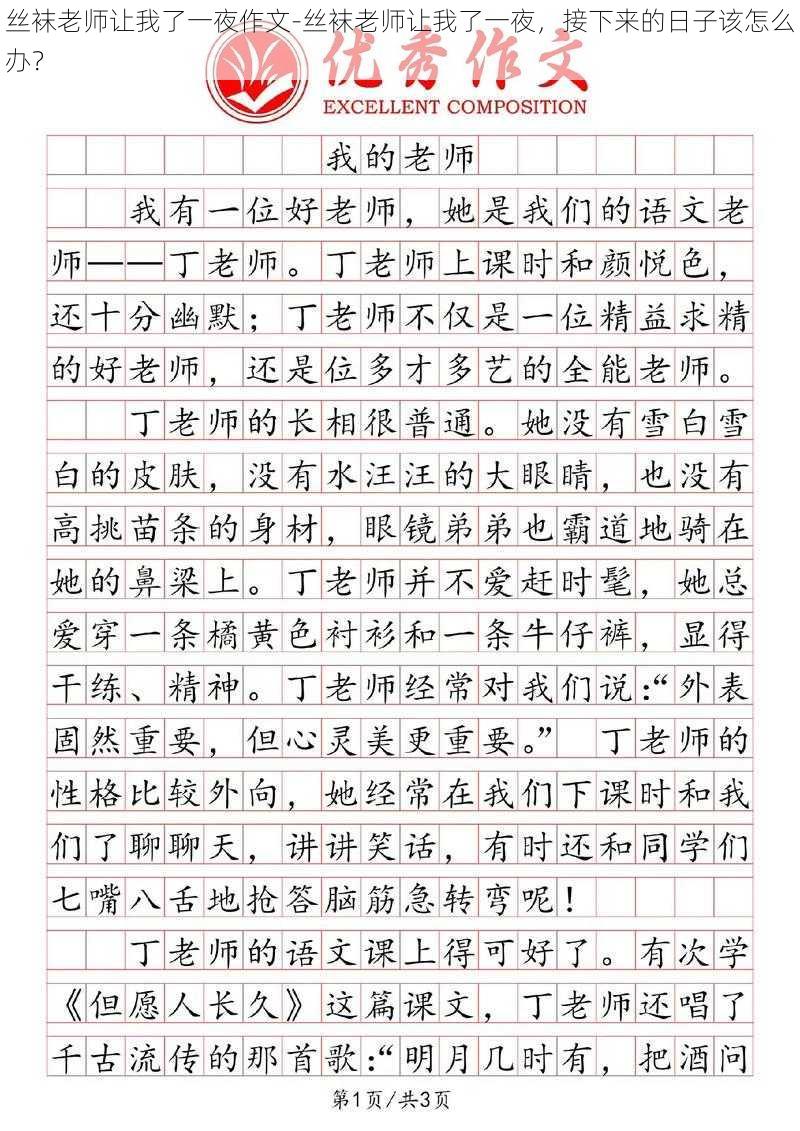 丝袜老师让我了一夜作文-丝袜老师让我了一夜，接下来的日子该怎么
办？
优秀作文
EXCELLENT COMPOSITION
我的老师
我有一位好老师，她是我们的语文老
师——丁老师。丁老师上课时和颜悦色，
还十分幽默；丁老师不仅是一位精益求精
的好老师，还是位多才多艺的全能老师。
丁老师的长相很普通。她没有雪白雪
白的皮肤，没有水汪汪的大眼睛，也没有
高挑苗条的身材，眼镜弟弟也霸道地骑在
她的鼻梁上。丁老师并不爱赶时髦，她总
爱穿一条橘黄色衬衫和一条牛仔裤，显得
干练、精神。丁老师经常对我们说：“外表
固然重要，但心灵美更重要。” 丁老师的
性格比较外向，她经常在我们下课时和我
们了聊聊天，讲讲笑话，有时还和同学们
七嘴八舌地抢答脑筋急转弯呢！
丁老师的语文课上得可好了。有次学
《但愿人长久》这篇课文，丁老师还唱了
千古流传的那首歌：“明月几时有，把酒问
第1页/共3页